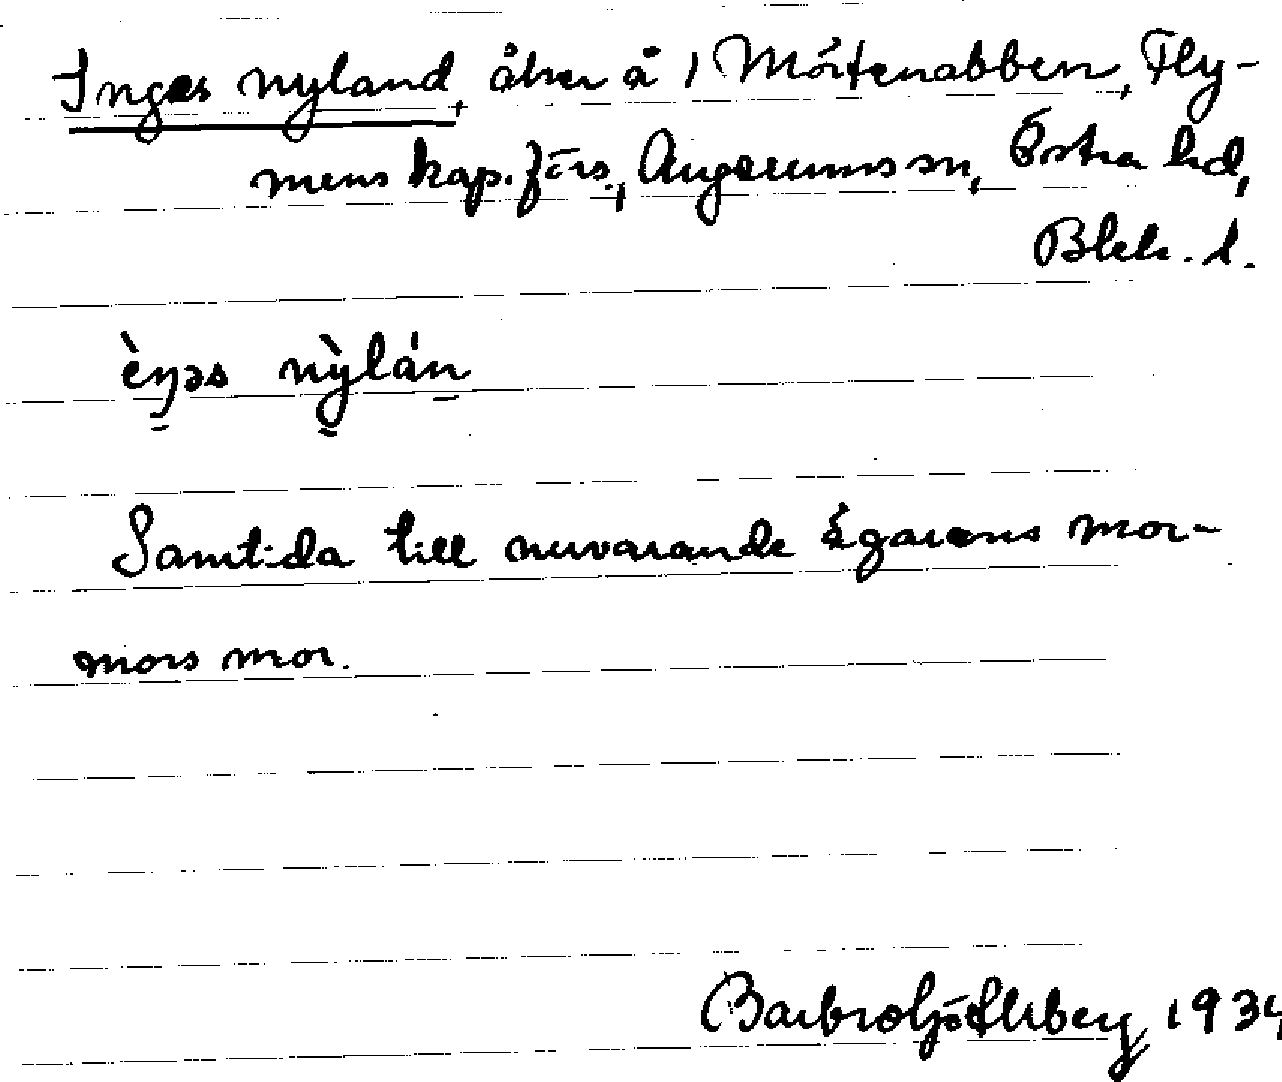 Inges nyland, åker å 1 Mörtenabben, Fly-
mens kap. förs., Augerums sn, Östra hd,
Blek. l.
èŋəs nỳlán
Samtida till nuvarande ägarens mor-
mors mor.
1934